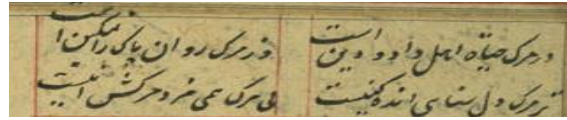 در مرک حیاة اهل داد و دین است
وز مرک روان پاک را تمکین است
نز مرک دل سنایی اندهکینست
بی مرک همی میرد و مرکش اینست